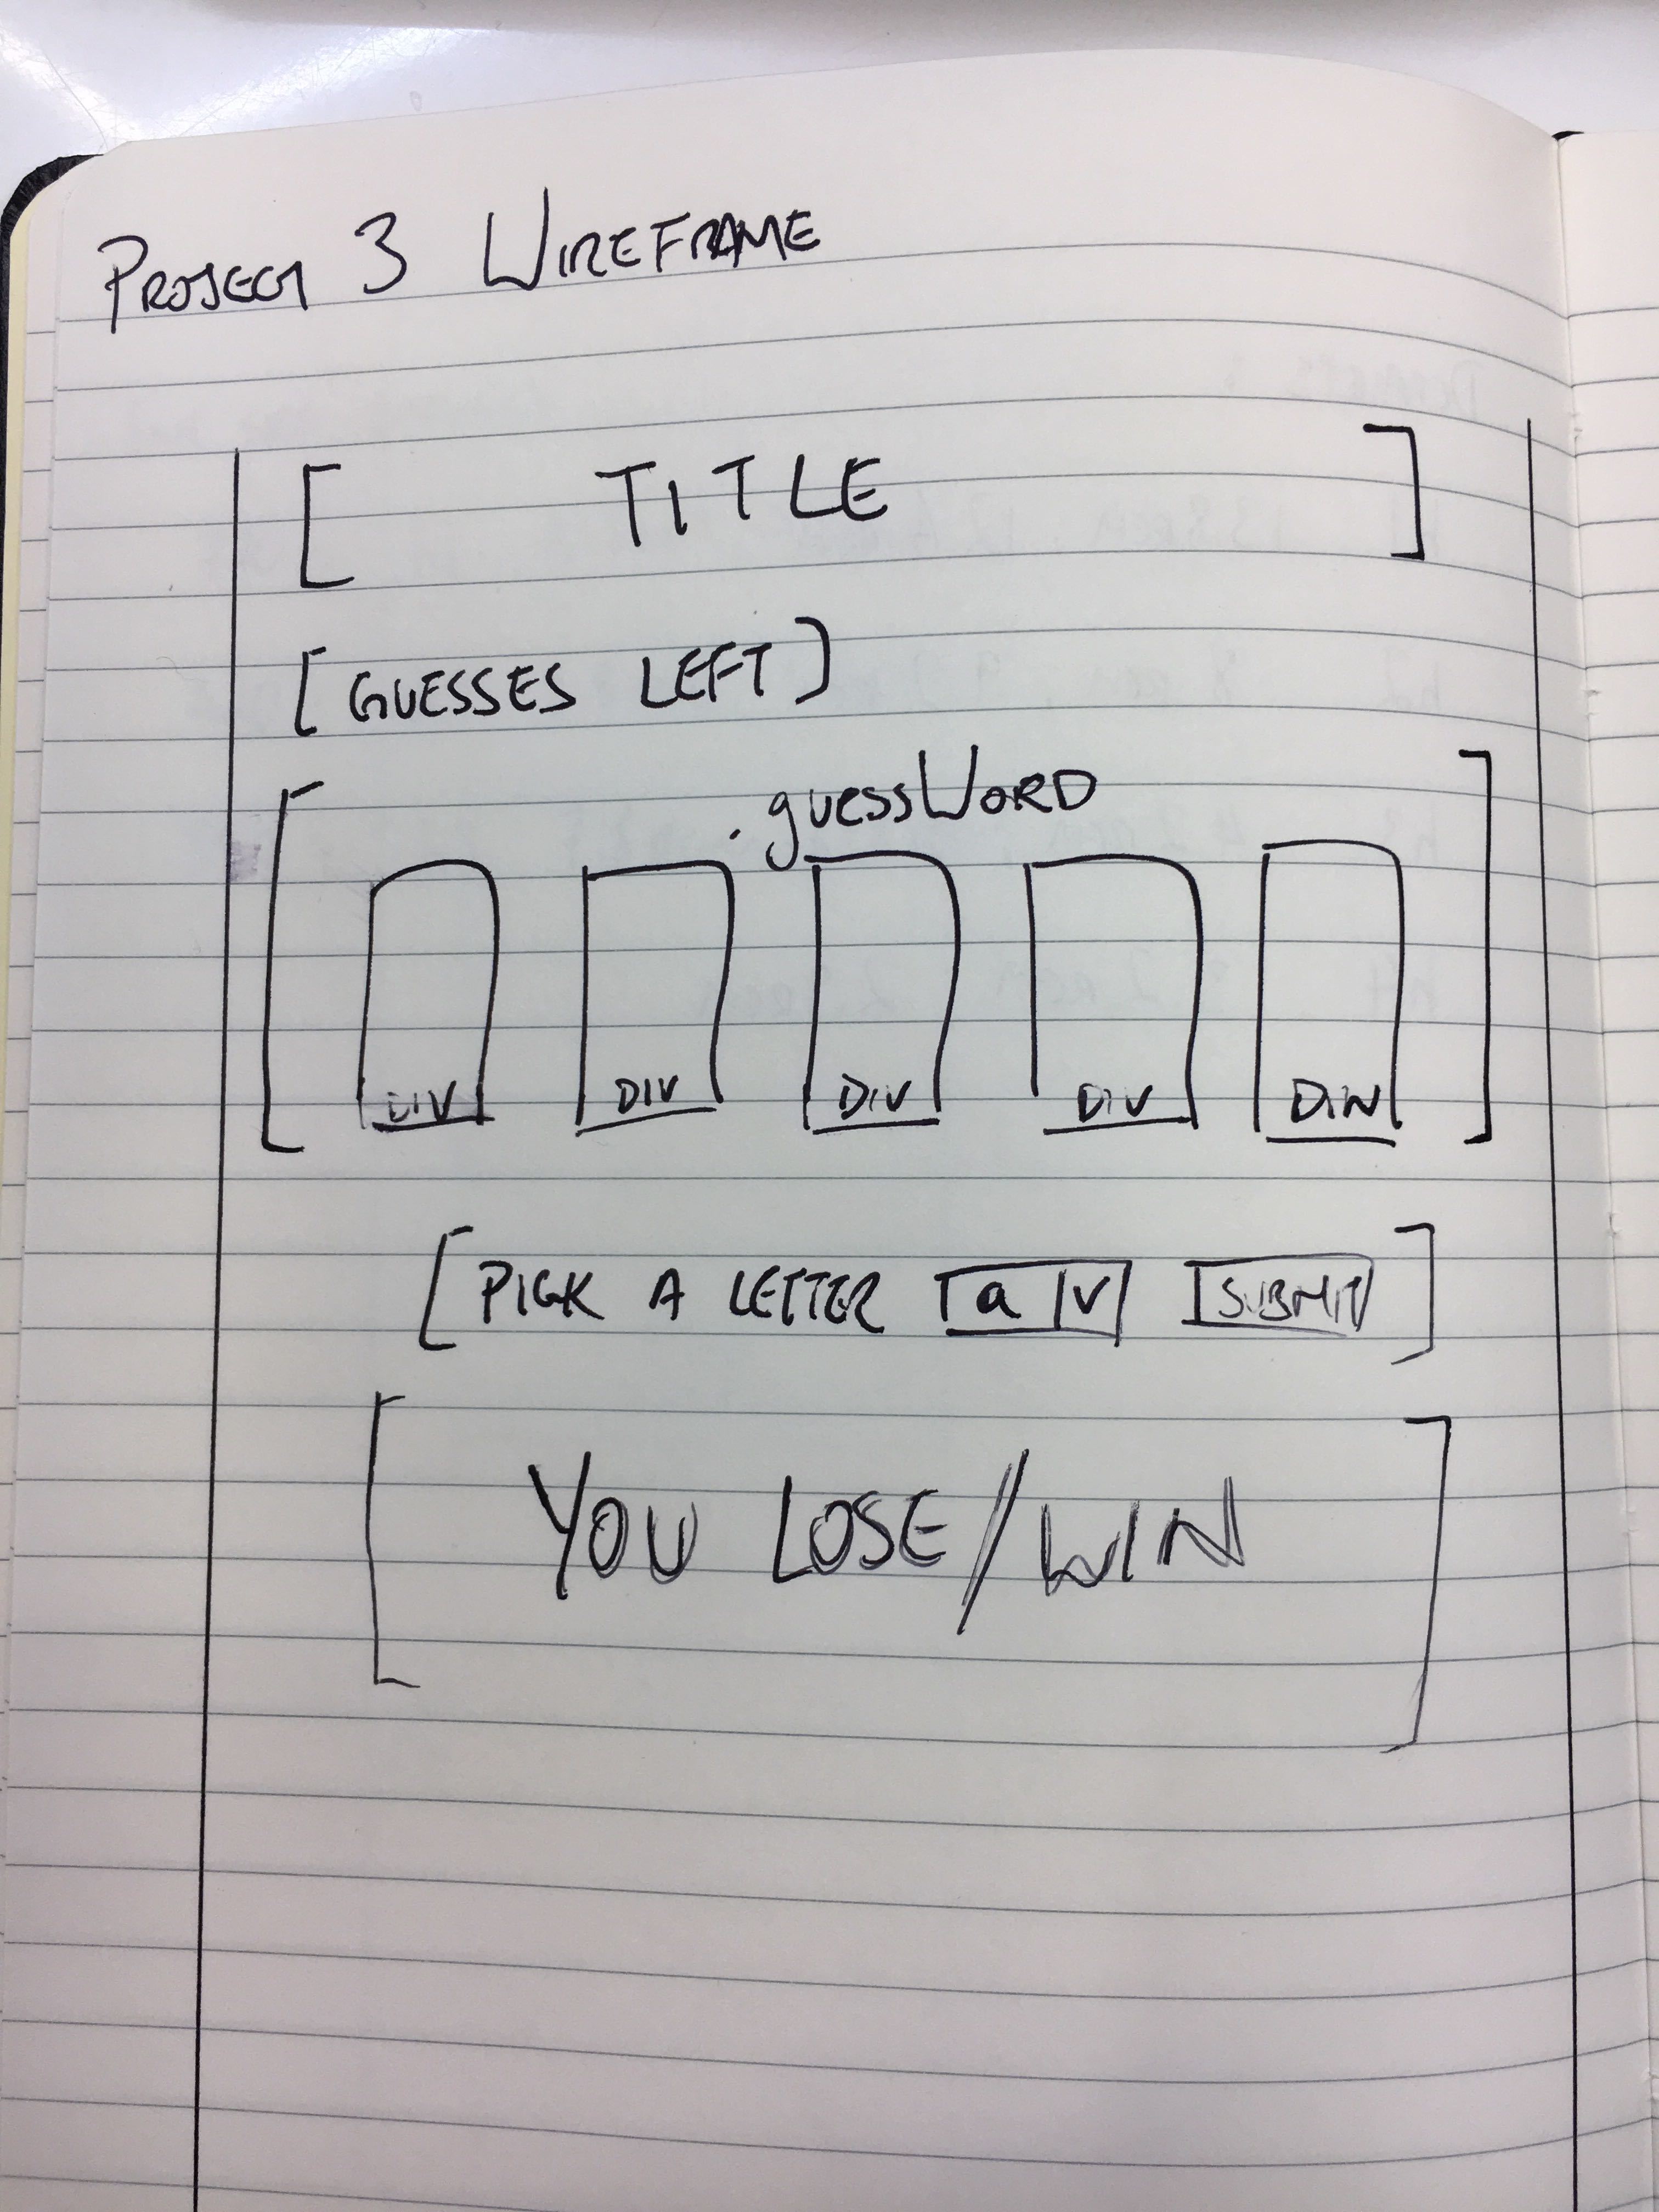 PROJECT 3 WIREFRAME
[ TITLE ]
[ GUESSES LEFT ]
.guessWORD
DIV DIV DIV DIV DIV
[ PICK A LETTER a V SUBMIT ]
YOU LOSE/WIN